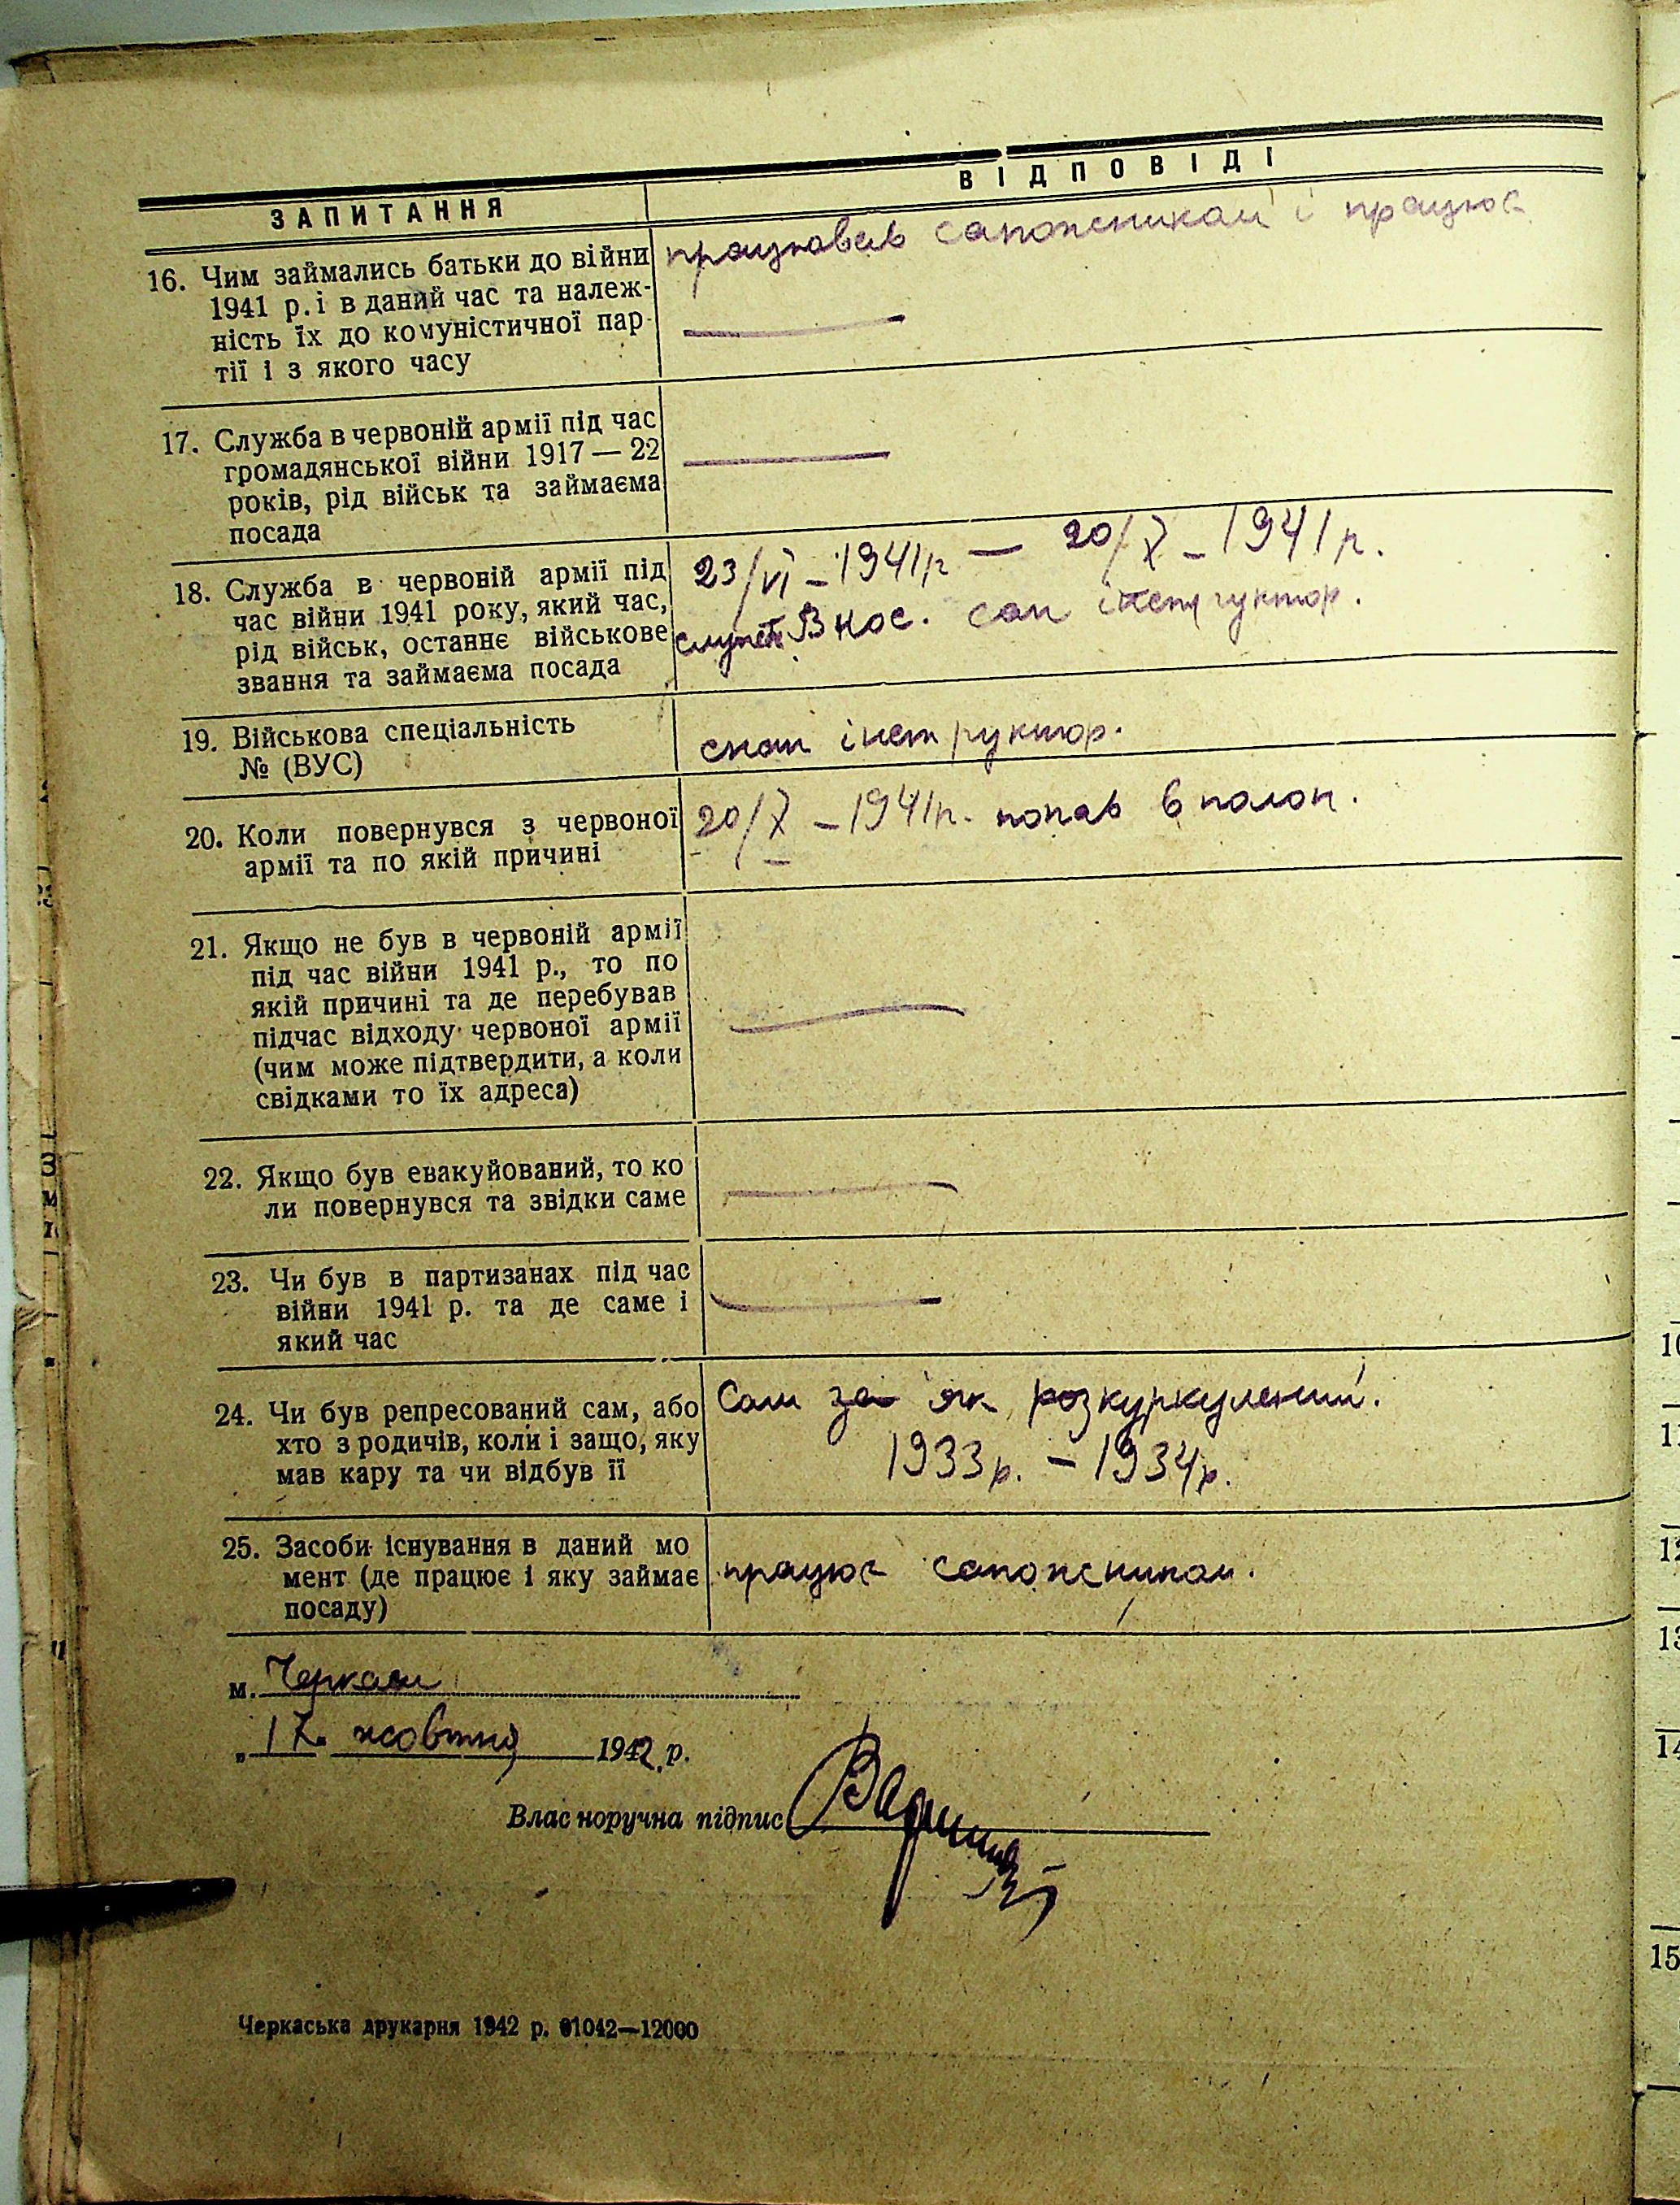 ЗАПИТАННЯ
ВІДПОВІДІ
16. Чим займались батьки до війни
1941 р. і в даний час та належ-
ність їх до комуністичної пар-
тії і з якого часу
працював сапожником і працює
17. Служба в червоній армії під час
громадянської війни 1917 — 22
років, рід військ та займаєма
посада
18. Служба в червоній армії під
час війни 1941 року, який час,
рід військ, останнє військове
звання та займаєма посада
23/VI – 1941р — 20/X – 1941р.
сан інструктор.
19. Військова спеціальність
№ (ВУС)
інструктор.
20. Коли повернувся з червоної
армії та по якій причині
20/X – 1941р. попав в полон.
21. Якщо не був в червоній армії
під час війни 1941 р., то по
якій причині та де перебував
підчас відходу червоної армії
(чим може підтвердити, а коли
свідками то їх адреса)
22. Якщо був евакуйований, то ко
ли повернувся та звідки саме
23. Чи був в партизанах під час
війни 1941 р. та де саме і
який час
24. Чи був репресований сам, або
хто з родичів, коли і защо, яку
мав кару та чи відбув її
Сам за як розкуркулений.
1933р. – 1934р.
25. Засоби існування в даний мо
мент (де працює і яку займає
посаду)
працює сапожником.
м. Черкаси
„17" жовтня 1942 р.
Власноручна підпис
Черкаська друкарня 1942 р. 01042—12000
10
11
12
13
14
15